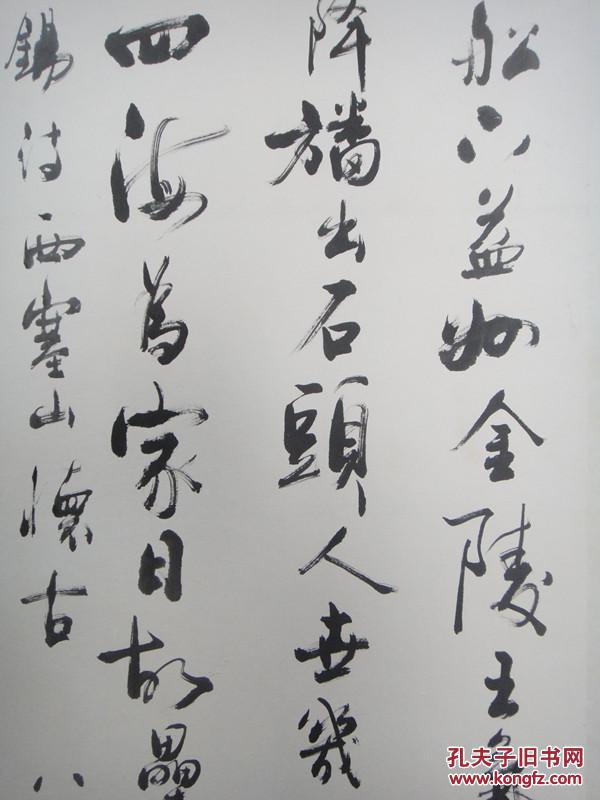 船下益州金陵王氣
降旛出石頭人世幾
四海為家日故壘
錫詩西塞山懷古 八
孔夫子旧书网
www.kongfz.com